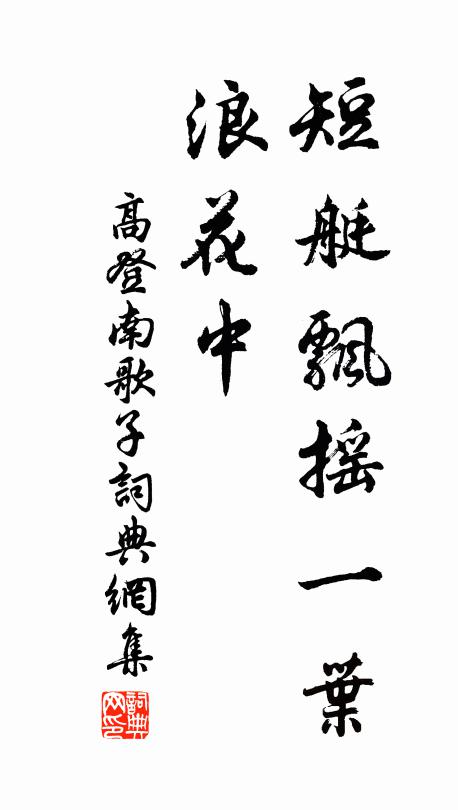 短艇飄搖一葉
浪花中
高登南歌子詞典網集
詞典网印